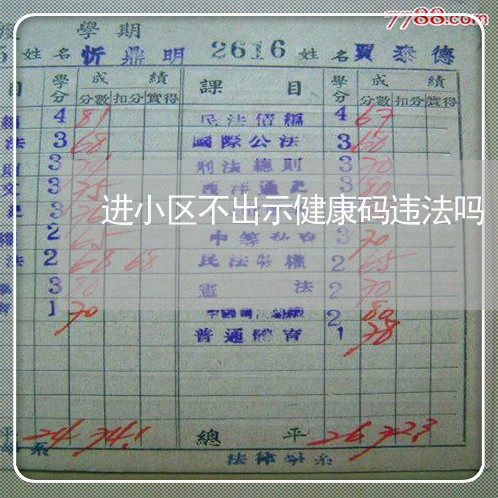 7788.com
學期
姓名 忻鼎明 2616 姓名 賈泰德
目 學分 成績 課目 學分 成績
分數 扣分 實得 分數 扣分 實得
4 81 民法債編 4 67
法 3 68 國際公法 3 60
3 刑法總則 3 70
文 3 75 西洋通史 3 80
进小区不出示健康码违法吗
2 65 3 70
法 2 68 68 民法物權 2 65
3 80 憲法 2 70
1 70 2 80
普通體育 1 78
平 24 74.1 總平 26 72.3
系 法律學系